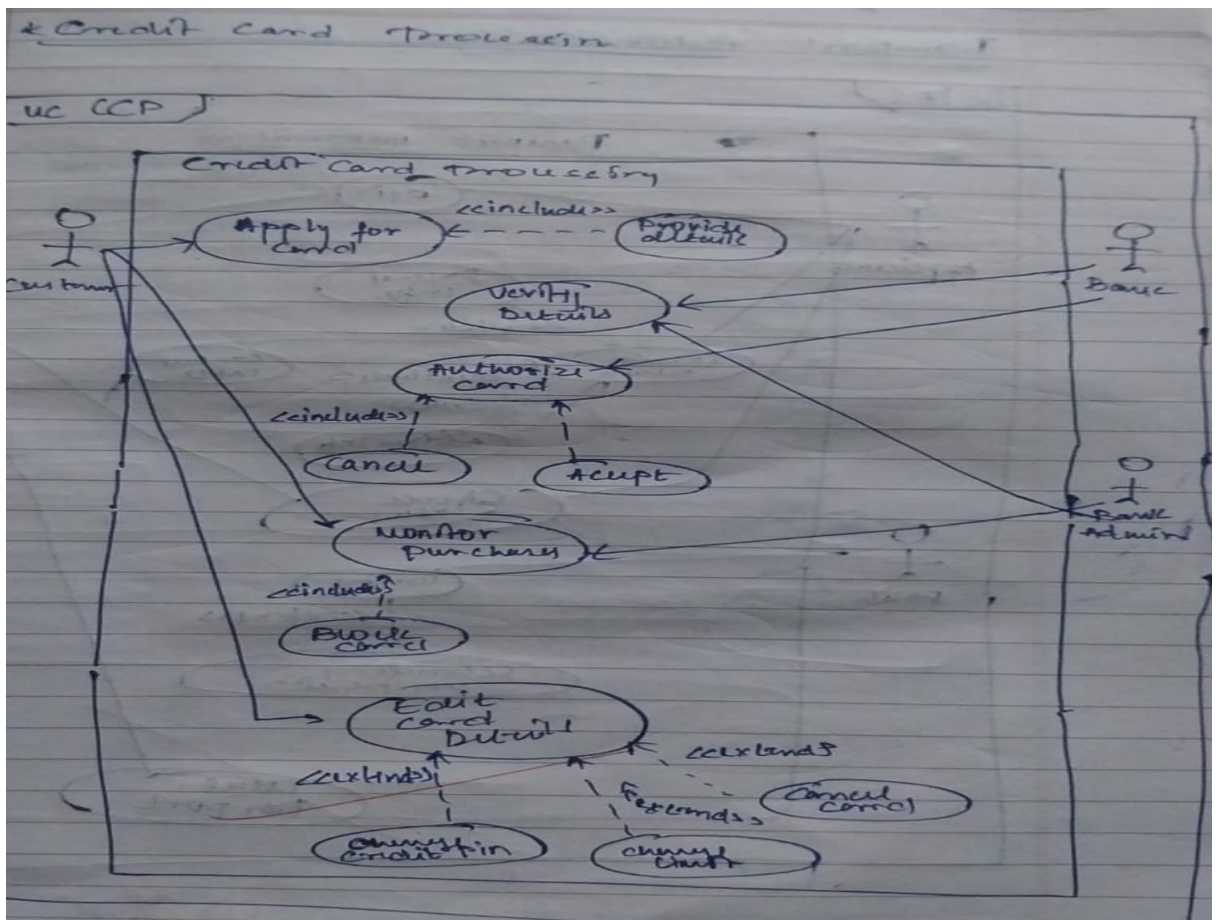 * Credit Card Processin
uc CCP
Credit Card Processing
Apply for
Card
<<include>>
Provide
details
Customer
Bank
Verify
Details
Authorize
Card
<<include>>
Cancel
Accept
Bank
Admin
Monitor
purchases
<<include>>
Block
Card
Edit
Card
Details
<<extends>>
<<extends>>
<<extends>>
Cancel
Card
Change
Credit pin
Change